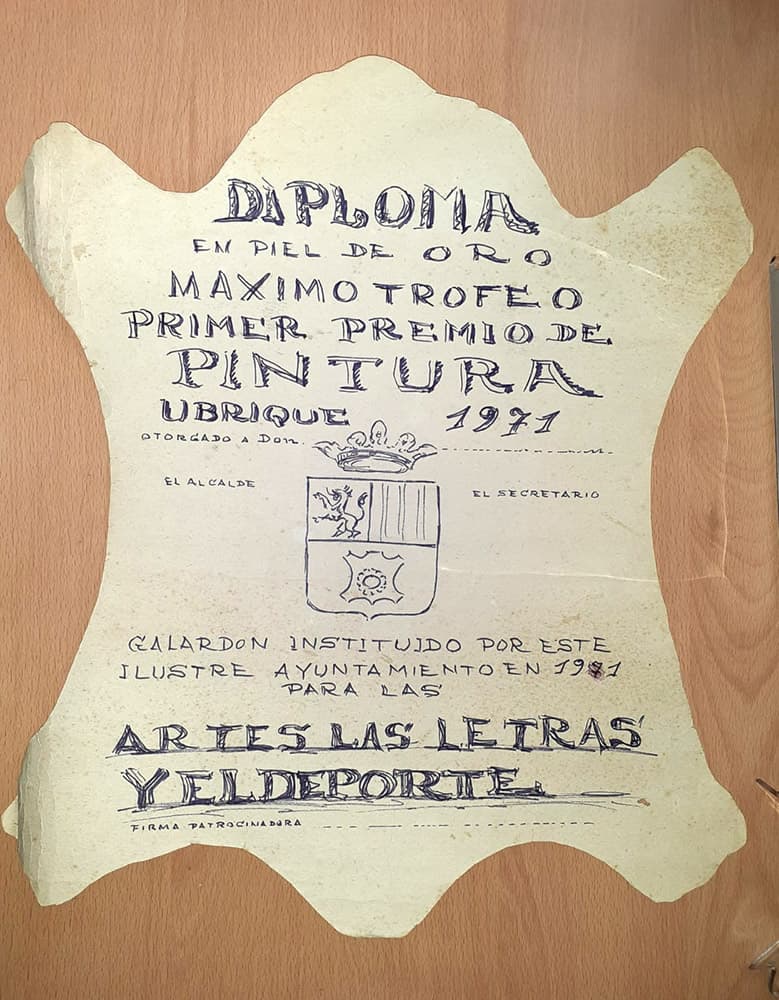 DIPLOMA
EN PIEL DE ORO
MAXIMO TROFEO
PRIMER PREMIO DE
PINTURA
UBRIQUE 1971
OTORGADO A DON.
EL ALCALDE EL SECRETARIO
GALARDON INSTITUIDO POR ESTE
ILUSTRE AYUNTAMIENTO EN 1971
PARA LAS
ARTES LAS LETRAS
Y EL DEPORTE.
FIRMA PATROCINADORA